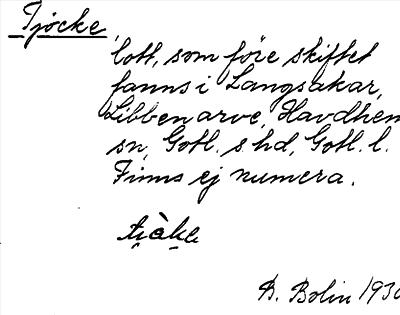 Tjocke,
lott, som före skiftet
fanns i Langsakar,
Libbenarve, Havdhem
sn, Gotl. s hd, Gotl. l.
Finns ej numera.
B. Bolin 1930